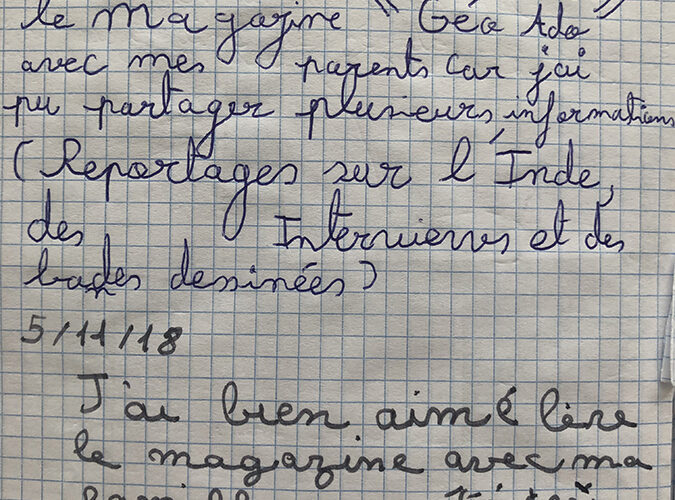 le magazine "Géo Ado"
avec mes parents car j'ai
pu partager plusieurs informations
(Reportages sur l'Inde,
des Interviews et des
bandes dessinées)
5/11/18
J'ai bien aimé lire
le magazine avec ma
famille